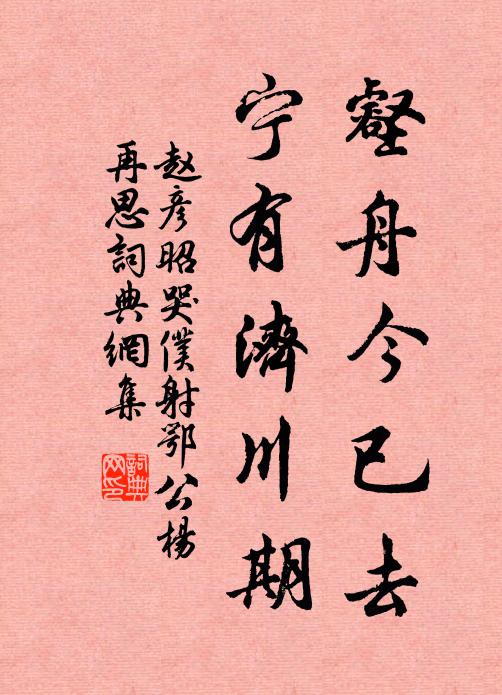 壑舟今已去
宁有濟川期
赵彦昭哭僕射鄂公楊
再思詞典網集
詞典网印